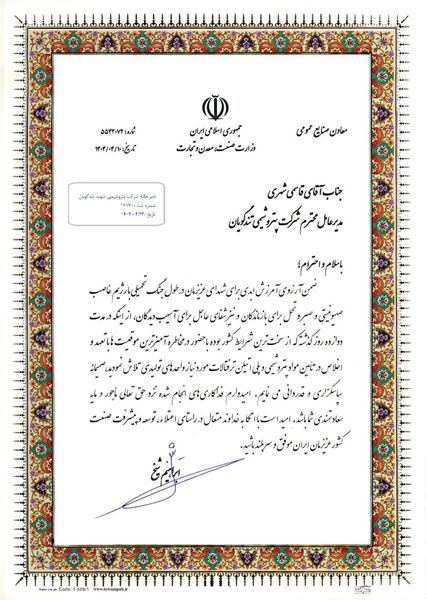 معاون صنایع عمومی
جمهوری اسلامی ایران
وزارت صنعت، معدن و تجارت
شماره: ۵۵۴۳۰۷۲
تاریخ: ۱۴۰۴/۰۴/۱۰
دبیرخانه شرکت پتروشیمی شهید تندگویان
شماره ثبت: ۱۷۱۷۰
تاریخ: ۱۴۰۴-۰۴-۲۲
جناب آقای قاسمی شهری
مدیرعامل محترم شرکت پتروشیمی تندگویان
با سلام و احترام؛
ضمن آرزوی آمرزش ابدی برای شهدای عزیزمان در طول جنگ تحمیلی با رژیم غاصب
صهیونیستی و صبر و تحمل برای بازماندگان و نیز شفای عاجل برای آسیب دیدگان، از اینکه در مدت
دوازده روز گذشته که از سخت‌ترین شرایط کشور بوده با حضور در مخاطره آمیزترین موقعیت با تعهد و
اخلاص در تامین مواد پتروشیمی و پلی اتیلن ترفتالات مورد نیاز واحدهای تولیدی تلاش نمودید، صمیمانه
سپاسگزاری و قدردانی می نمایم. امیدوارم فداکاری‌های انجام شده نزد حق تعالی مأجور و مایه
سعادتمندی شما باشد. امید است با اتکا به خداوند متعال در راستای اعتلاء، توسعه و پیشرفت صنعت
کشور عزیزمان ایران موفق و سربلند باشید.
ابراهیم شیخ
Code: T-529/1
www.nowruzpub.ir